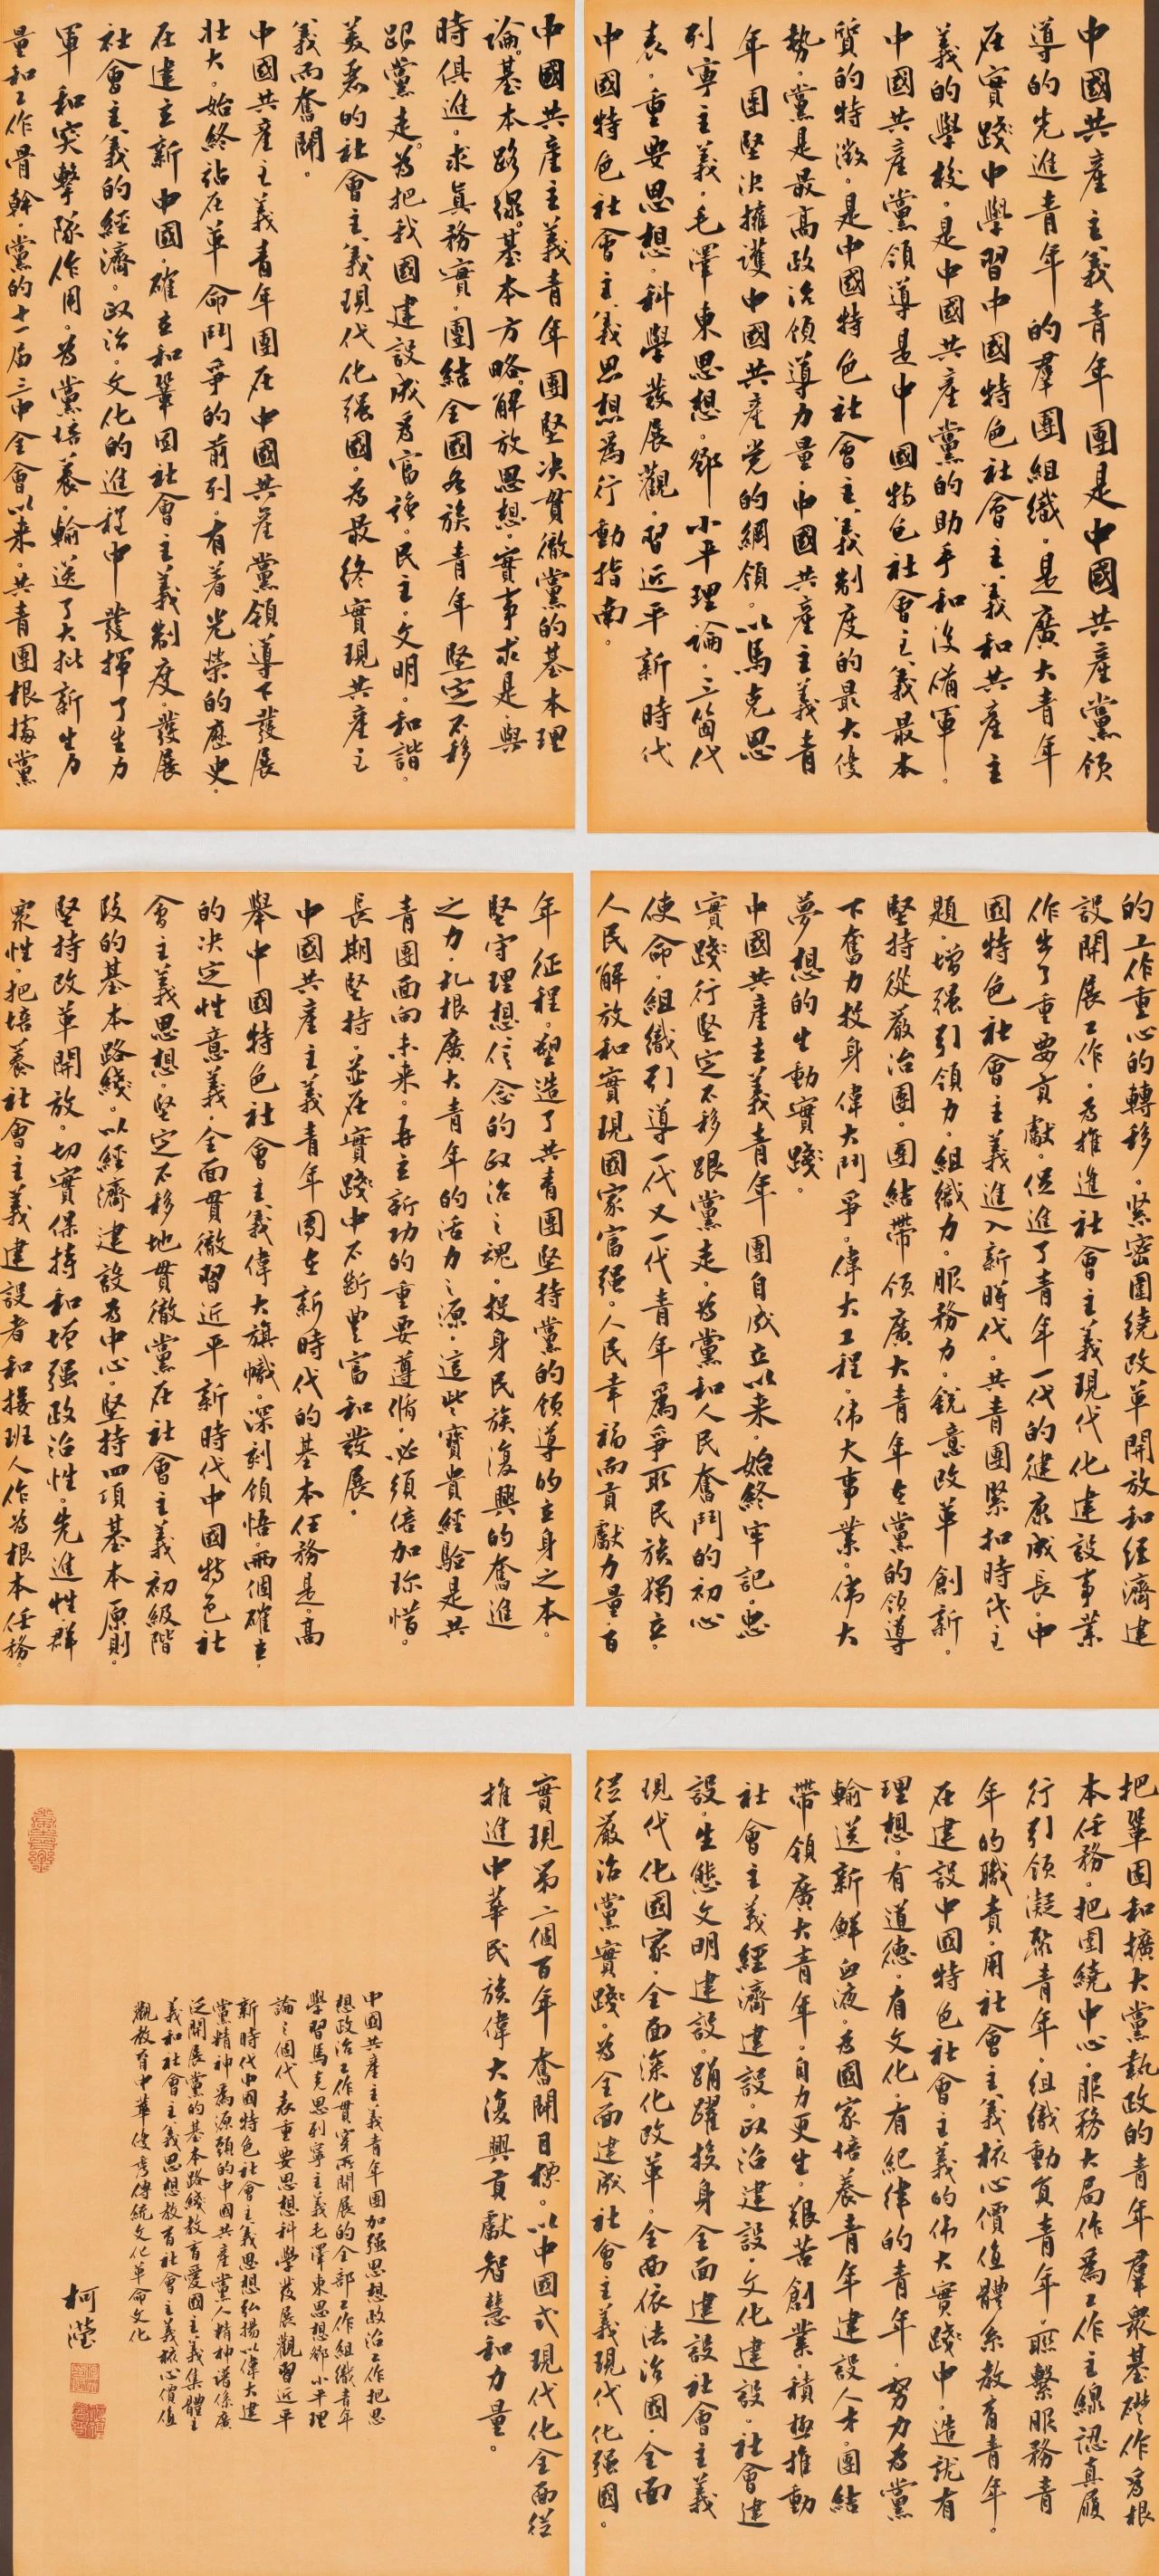 中國共產主義青年團是中國共產黨領
導的先進青年的羣團組織。是廣大青年
在實踐中學習中國特色社會主義和共產主
義的學校。是中國共產黨的助手和後備軍。
中國共產黨領導是中國特色社會主義最本
質的特徵。是中國特色社會主義制度的最大優
勢。黨是最高政治領導力量。中國共產主義青
年團堅決擁護中國共產党的綱領。以馬克思
列寧主義。毛澤東思想。鄧小平理論。三箇代
表。重要思想。科學發展觀。習近平新時代
中國特色社會主義思想為行動指南。
中國共產主義青年團堅決貫徹黨的基本理
論。基本路線。基本方略。解放思想。實事求是。與
時俱進。求真務實。團結全國各族青年堅定不移
跟黨走。為把我國建設成為富強。民主。文明。和諧。
美麗的社會主義現代化强國。為最終實現共產主
義而奮鬭。
中國共產主義青年團在中國共產黨領導下發展
壯大。始終站在革命鬥爭的前列。有著光榮的歷史。
在建立新中國。確立和鞏固社會主義制度。發展
社會主義的經濟。政治。文化的進程中發揮了生力
軍和突擊隊作用。為黨培養。輸送了大批新生力
量和工作骨幹。黨的十一届三中全會以来。共青團根據黨
的工作重心的轉移。緊密圍繞改革開放和經濟建
設開展工作。為推進社會主義現代化建設事業
作出了重要貢獻。促進了青年一代的健康成長。中
國特色社會主義進入新時代。共青團緊扣時代主
題。增强引領力。組織力。服務力。銳意改革創新。
堅持從嚴治團。團結帶領廣大青年在黨的領導
下奮力投身偉大鬥爭。偉大工程。偉大事業。偉大
夢想的生動實踐。
中國共產主義青年團自成立以来。始終牢記。忠
實踐行堅定不移跟黨走。為黨和人民奮鬥的初心
使命。組織引導一代又一代青年爲爭取民族獨立。
人民解放和實現國家富强。人民幸福而貢獻力量百
年征程。塑造了共青團堅持黨的領導的立身之本。
堅守理想信念的政治之魂。投身民族復興的奮進
之力。扎根廣大青年的活力之源。這些寶貴經驗是共
青團面向未来。再立新功的重要遵循。必須倍加珍惜。
長期堅持。並在實踐中不斷豐富和發展。
中國共產主義青年團在新時代的基本任務是。高
舉中國特色社會主義偉大旗幟。深刻領悟。兩個確立。
的決定性意義。全面貫徹習近平新時代中國特色社
會主義思想。堅定不移地貫徹黨在社會主義初級階
段的基本路綫。以經濟建設為中心。堅持四項基本原則。
堅持改革開放。切實保持和增强政治性。先進性群
衆性。把培養社會主義建設者和接班人作為根本任務。
把鞏固和擴大黨執政的青年羣衆基礎作爲根
本任務。把圍繞中心。服務大局作爲工作主線認真履
行引領凝聚青年。組織動員青年。聯繫服務青
年的職責。用社會主義核心價值體系教育青年。
在建設中國特色社會主義的偉大實踐中。造就有
理想。有道德。有文化。有紀律的青年。努力為黨
輸送新鮮血液。為國家培養青年建設人才。團結
帶領廣大青年。自力更生。艱苦創業。積極推動
社會主義經濟建設。政治建設。文化建設。社會建
設。生態文明建設。踴躍投身全面建設社會主義
現代化國家。全面深化改革。全面依法治國。全面
從嚴治黨實踐。為全面建成社會主義現代化强國。
實現第二個百年奮鬭目標。以中國式現代化全面從
推進中華民族偉大復興貢獻智慧和力量。
中國共產主義青年團加强思想政治工作把思
想政治工作貫穿所開展的全部工作組織青年
學習馬克思列寧主義毛澤東思想鄧小平理
論三個代表重要思想科學發展觀習近平
新時代中國特色社會主義思想弘揚以偉大建
黨精神為源頭的中國共產黨人精神譜係廣
泛開展黨的基本路綫教育愛國主義集體主
義和社會主義思想教育社會主義核心價值
觀教育中華優秀傳統文化革命文化
柯瀅